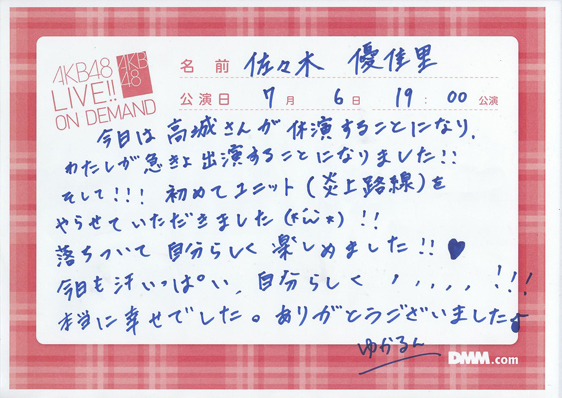 AKB48
LIVE!!
ON DEMAND
AKB
48
名前 佐々木 優佳里
公演日 7月 6日 19:00 公演
今日は高城さんが休演することになり、
わたしが急きょ出演することになりました!!
そして!!! 初めてユニット(炎上路線)を
やらせていただきました(*´ω`*)!!
落ちついて自分らしく楽しめました!!♥
今日も汗いっぱい、自分らしく、、、、、!!!
本当に幸せでした。ありがとうございました♪
ゆかるん
DMM.com